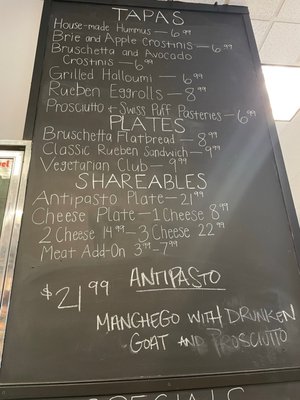 TAPAS
House-made Hummus — 6.99
Brie and Apple Crostinis — 6.99
Bruschetta and Avocado
Crostinis — 6.99
Grilled Halloumi — 6.99
Rueben Eggrolls — 8.99
Prosciutto & Swiss Puff Pasteries — 6.99
PLATES
Bruschetta Flatbread — 8.99
Classic Rueben Sandwich — 9.99
Vegetarian Club — 9.99
SHAREABLES
Antipasto Plate — 21.99
Cheese Plate — 1 Cheese 8.99
2 Cheese 14.99 — 3 Cheese 22.99
Meat Add-On 3.99 - 7.99
ANTIPASTO
$21.99
MANCHEGO WITH DRUNKEN
GOAT AND PROSCIUTTO
SPECIALS